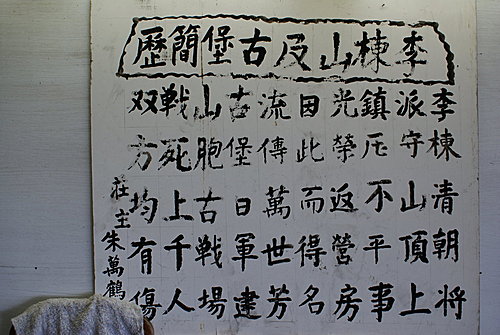 李棟山及古堡簡歷
李棟清朝將
派守山頂上
鎮压不平事
光榮返營房
因此而得名
流傳萬世芳
古堡日軍建
山胞古戦場
戦死上千人
双方均有傷
莊主朱萬鶴